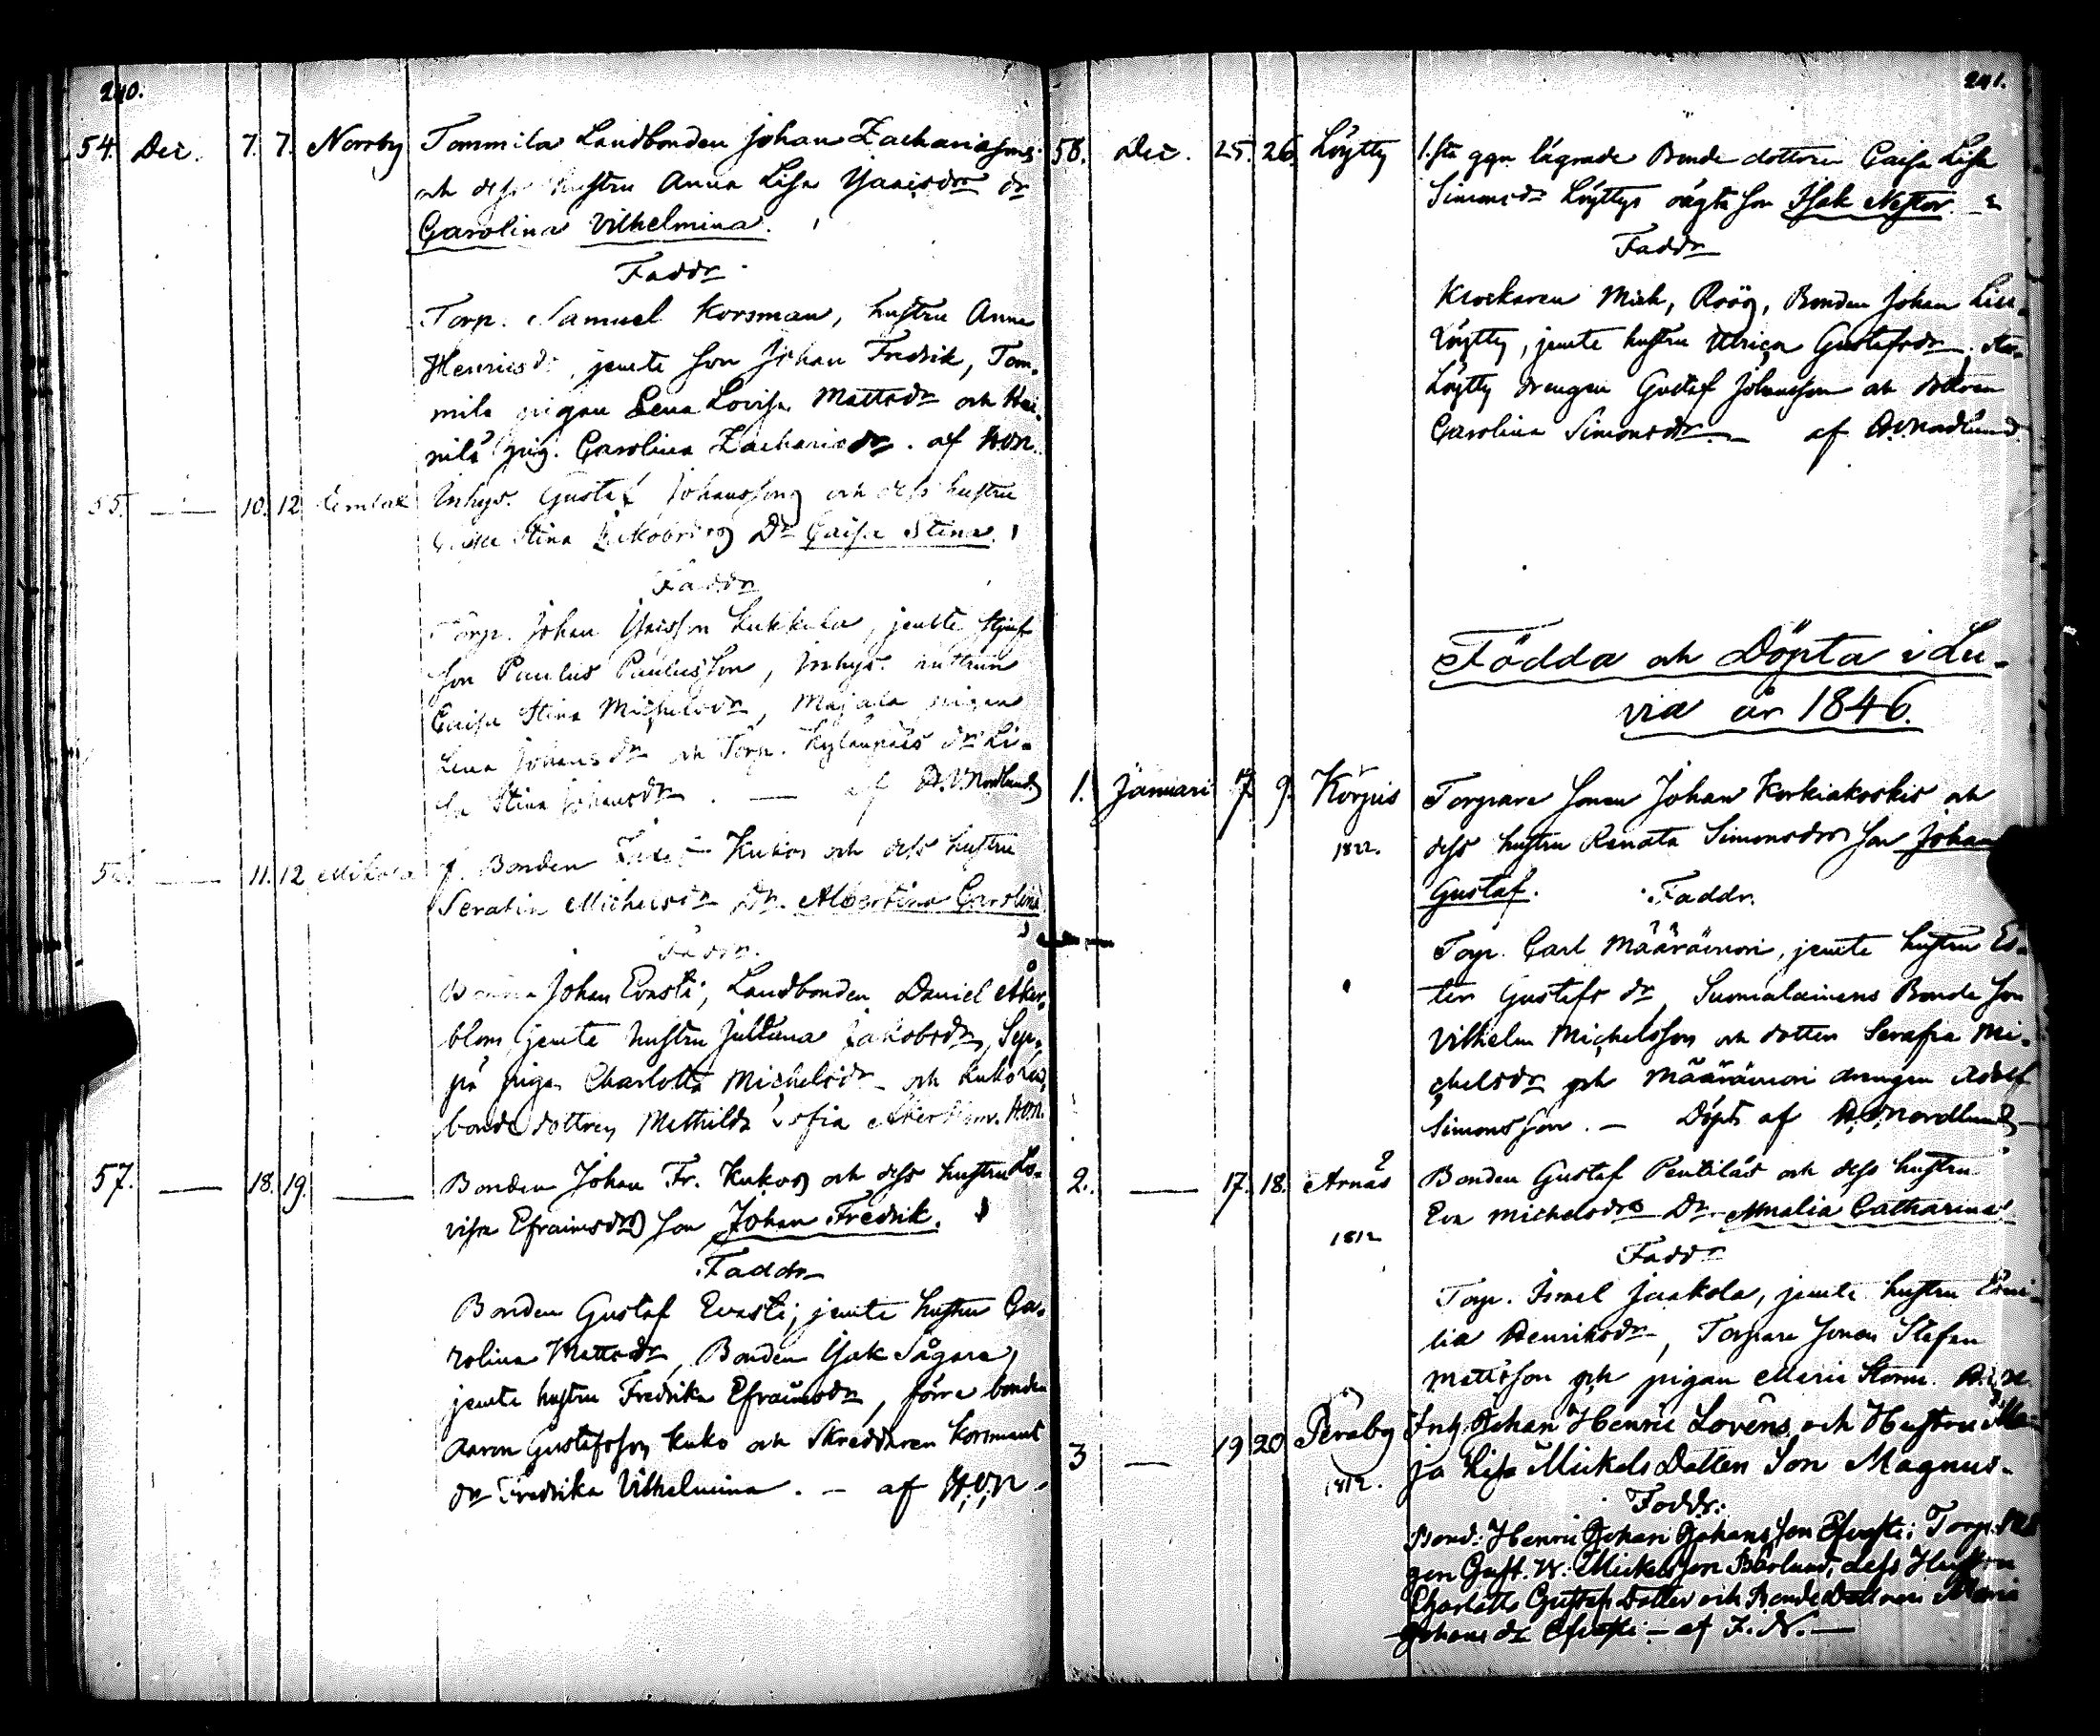 240.
54. Dec. 7. 7. Norrby Tommila Landbonden Johan Zachariasson
och dess hustru Anna Lisa Isaisdr dr
Carolina Vilhelmina.
Faddr
Torp. Samuel Korsman, hustru Anna
Henricsdr, jemte son Johan Fredrik, Tom-
mila pigan Lena Lovisa Mattsdr och Hei-
nilä pig. Carolina Zachariedr. af H.O.N.
55. — 10. 12 Inhys. Gustaf Johansson och dess hustru
Caisa Stina Jakobsdr Dr Caisa Stina.
Faddr
Torp. Johan Isaisson Kukkila, jemte
son Paulus Paulusson, Inhys.
Caisa Stina Michelsdr, Majala pigan
Lena Johansdr och Torp. Kylänpääs dr Li-
sa Stina Johansdr. — af Nordlund
56. — 11. 12 Mikola f. Bonden Kukos och dess hustru
Serafin Michelsdr Dr. Albertina Carolina
Faddr.
Bonden Johan Evasti, Landbonden Daniel Åker-
blom jemte hustru Juliana Jakobsdr, Sep-
pä pigan Charlotta Michelsdr och Kukos
bondedottren Mathilda Sofia H.O.N.
57. — 18. 19. — Bonden Johan Fr. Kukos och dess hustru Lo-
visa Efraimsdr son Johan Fredrik.
Faddr
Bonden Gustaf Evasti, jemte hustru Ca-
rolina Mattsdr, Bonden Isak Sågare,
jemte hustru Fredrika Efraimsdr, förre bonden
Aaron Gustafsson Kuko och Skreddaren Korsmans
dr Fredrika Vilhelmina. — af H.O.N.
241.
58. Dec. 25. 26. Löytty 1:sta ggn lägrade Bonde dottren Caisa Lisa
Simonsdr Löyttys oägta son Isak Nestor.
Faddr
Klockaren Mich. Roos, Bonden Johan
Löytty, jemte hustru Ulrica Gustafsdr,
Löytty drengen Gustaf Johansson och dottren
Carolina Simonsdr — af Nordlund
Födda och Döpta i Lu-
via år 1846.
1. Januari 7. 9. Korpis Torpare sonen Johan Korkiakoskis och
1822. dess hustru Renata Simonsdr son Johan
Gustaf. Faddr.
Torp. Carl Määrävuori, jemte hustru Es-
ter Gustafsdr, Suomalainens Bonde son
Vilhelm Michelsson och dotter Serafia Mi-
chelsdr och Määrävuori drengen Adolf
Simonsson. — Döpt af Nordlund
2. — 17. 18. Arnäs Bonden Gustaf Pentiläs och dess hustru
1812 Eva Michelsdr Dr Amalia Catharina
Faddr
Torp. Ismel Jaakola, jemte hustru
Henriksdr, Torpare sonen Stefan
Mattsson och pigan Maria Storm.
3 — 19 20 Peräby Johan Henric Lovéns och Hustru Ma-
1812. ja Lisa Mickels Dotters Son Magnus.
Faddr:
Bond: Henric Johan Johansson Efvasti; Torp.
Gust. W. Mickelsson Bärlund, dess Hustru
Charlotta Gustafs Dotter och Bonde Dottren Maria
Johans dr Efvasti — af J. N. —